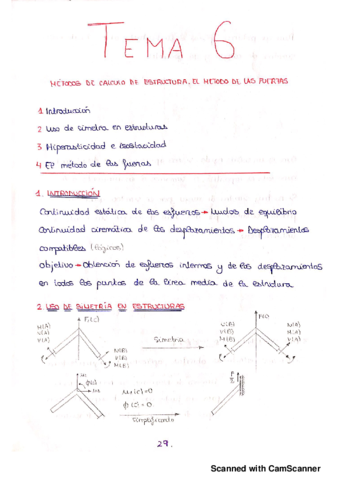 TEMA 6
MÉTODOS DE CALCULO DE ESTRUCTURA. EL METODO DE LAS FUERZAS
1 Introducción
2 Uso de simetria en estructuras
3 Hiperasticidad e isostacidad
4 El método de las fuerzas
1. INTRODUCCIÓN
Continuidad estática de los esfuerzos → Ecuaciones de equilibrio
Continuidad cinemática de los desplazamientos → Desplazamientos
compatibles (lógicos)
Objetivo → Obtención de esfuerzos internos y de los desplazamientos
en todos los puntos de la línea media de la estructura.
2 USO DE SIMETRÍA EN ESTRUCTURAS
F(c)
M(A)
V(A)
M(B)
V(B)
Simetria
N(B)
V(B)
M(B)
N(A)
M(A)
V(A)
ϕ(c)
μ(c)=0
ϕ(c)=0
Simplificando
29.
Scanned with CamScanner